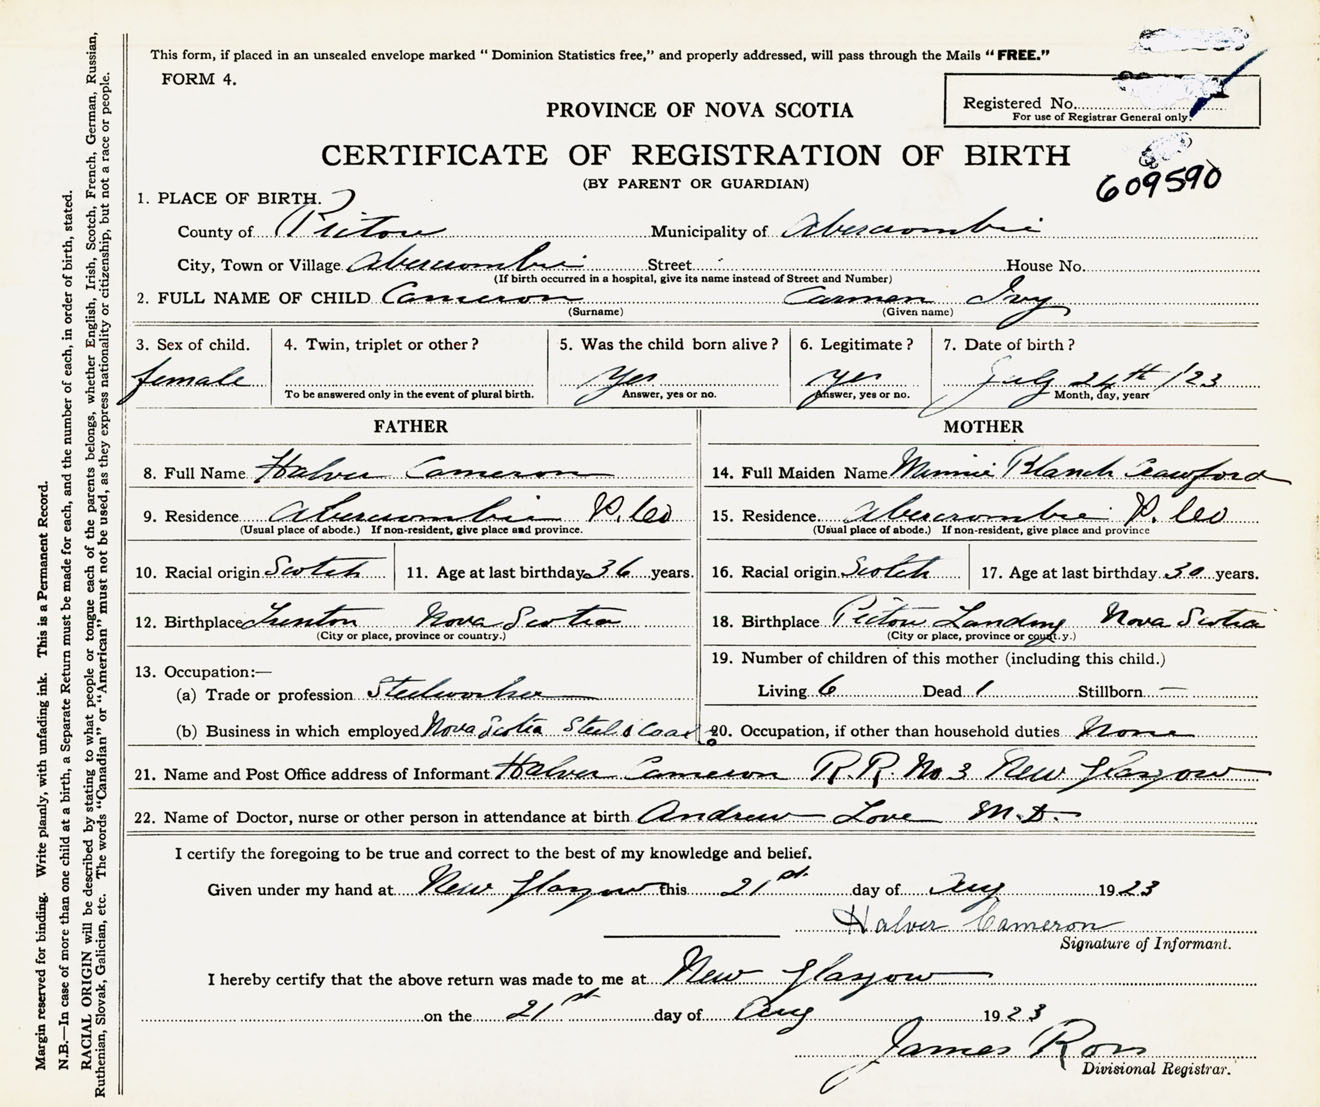 This form, if placed in an unsealed envelope marked " Dominion Statistics free," and properly addressed, will pass through the Mails " FREE."
FORM 4.
Registered No.
For use of Registrar General only.
PROVINCE OF NOVA SCOTIA
CERTIFICATE OF REGISTRATION OF BIRTH
(BY PARENT OR GUARDIAN)
609590
1. PLACE OF BIRTH.
County of Pictou Municipality of Abercrombie
City, Town or Village Abercrombie Street House No.
(If birth occurred in a hospital, give its name instead of Street and Number)
2. FULL NAME OF CHILD Cameron Carmen Ivy
(Surname) (Given name)
3. Sex of child. 4. Twin, triplet or other? 5. Was the child born alive? 6. Legitimate? 7. Date of birth?
female Yes yes July 24th /23
To be answered only in the event of plural birth. Answer, yes or no. Answer, yes or no. Month, day, year
FATHER MOTHER
8. Full Name Halver Cameron 14. Full Maiden Name Minnie Blanch Crawford
9. Residence Abercrombie P. Co 15. Residence Abercrombie P. Co
(Usual place of abode.) If non-resident, give place and province. (Usual place of abode.) If non-resident, give place and province
10. Racial origin Scotch 11. Age at last birthday 36 years. 16. Racial origin Scotch 17. Age at last birthday 30 years.
12. Birthplace Trenton Nova Scotia 18. Birthplace Pictou Landing Nova Scotia
(City or place, province or country.) (City or place, province or count.y.)
13. Occupation:— 19. Number of children of this mother (including this child.)
(a) Trade or profession Steelworker Living 6 Dead 1 Stillborn —
(b) Business in which employed Nova Scotia Steel & Coal Co 20. Occupation, if other than household duties None
21. Name and Post Office address of Informant Halver Cameron R.R. No 3 New Glasgow
22. Name of Doctor, nurse or other person in attendance at birth Andrew Love M.D.
I certify the foregoing to be true and correct to the best of my knowledge and belief.
Given under my hand at New Glasgow this 21st day of Aug 1923
Halver Cameron
Signature of Informant.
I hereby certify that the above return was made to me at New Glasgow
on the 21st day of Aug 1923
James Ross
Divisional Registrar.
Margin reserved for binding. Write plainly, with unfading ink. This is a Permanent Record.
N.B.—In case of more than one child at a birth, a Separate Return must be made for each, and the number of each, in order of birth, stated.
RACIAL ORIGIN will be described by stating to what people or tongue each of the parents belongs, whether English, Irish, Scotch, French, German, Russian,
Ruthenian, Slovak, Galician, etc. The words "Canadian" or "American" must not be used, as they express nationality or citizenship, but not a race or people.